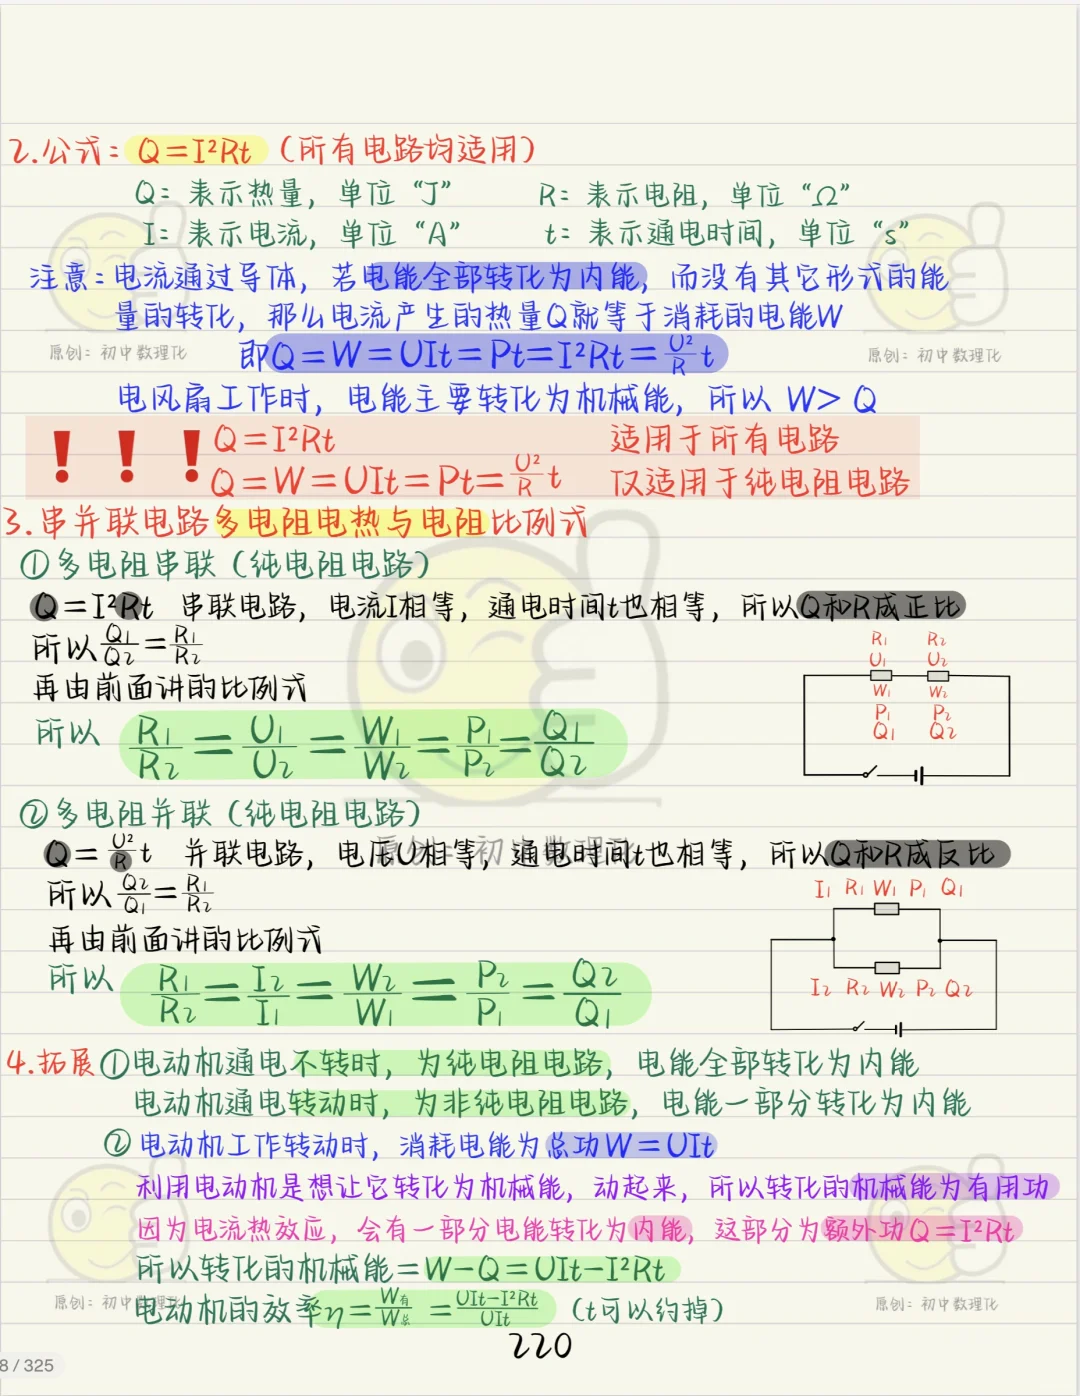 2.公式：Q=I²Rt（所有电路均适用）
Q：表示热量，单位“J” R：表示电阻，单位“Ω”
I：表示电流，单位“A” t：表示通电时间，单位“s”
注意：电流通过导体，若电能全部转化为内能，而没有其它形式的能
量的转化，那么电流产生的热量Q就等于消耗的电能W
原创：初中数理化 原创：初中数理化
即Q=W=UIt=Pt=I²Rt=U²/R t
电风扇工作时，电能主要转化为机械能，所以 W>Q
！！！Q=I²Rt 适用于所有电路
Q=W=UIt=Pt=U²/R t 仅适用于纯电阻电路
3.串并联电路多电阻电热与电阻比例式
①多电阻串联（纯电阻电路）
Q=I²Rt 串联电路，电流I相等，通电时间t也相等，所以Q和R成正比
所以Q₁/Q₂=R₁/R₂
再由前面讲的比例式
所以 R₁/R₂=U₁/U₂=W₁/W₂=P₁/P₂=Q₁/Q₂
R₁ R₂
U₁ U₂
W₁ W₂
P₁ P₂
Q₁ Q₂
②多电阻并联（纯电阻电路）
原创：初中数理化
Q=U²/R t 并联电路，电压U相等，通电时间t也相等，所以Q和R成反比
所以Q₂/Q₁=R₁/R₂
再由前面讲的比例式
所以 R₁/R₂=I₂/I₁=W₂/W₁=P₂/P₁=Q₂/Q₁
I₁ R₁ W₁ P₁ Q₁
I₂ R₂ W₂ P₂ Q₂
4.拓展①电动机通电不转时，为纯电阻电路，电能全部转化为内能
电动机通电转动时，为非纯电阻电路，电能一部分转化为内能
②电动机工作转动时，消耗电能为总功W=UIt
利用电动机是想让它转化为机械能，动起来，所以转化的机械能为有用功
因为电流热效应，会有一部分电能转化为内能，这部分为额外功Q=I²Rt
所以转化的机械能=W-Q=UIt-I²Rt
原创：初中数理化 原创：初中数理化
电动机的效率η=W有/W总=UIt-I²Rt/UIt（t可以约掉）
220
8 / 325